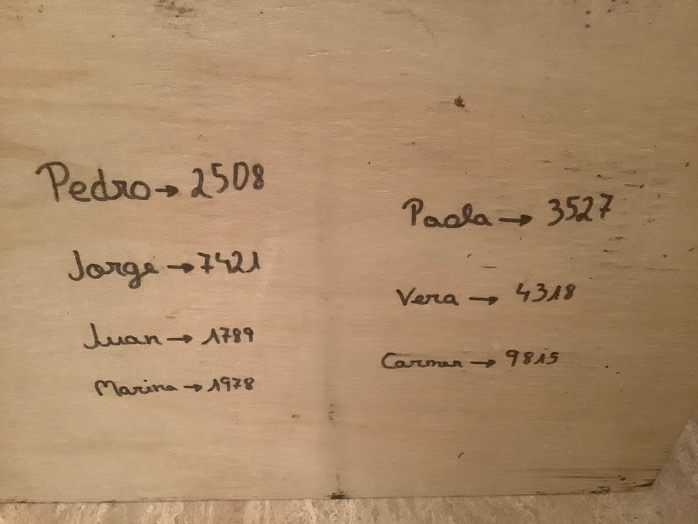 Pedro → 2508
Jorge → 7421
Juan → 1789
Marina → 1978
Paola → 3527
Vera → 4318
Carmen → 9815